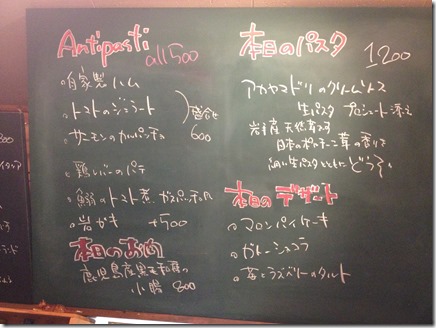 Antipasti all 500
自家製ハム
トマトのジェラート
サーモンのカルパッチョ
盛合せ
600
鶏レバーのパテ
鰯のトマト煮 ガスパッチョ風
岩ガキ +500
本日のお肉
鹿児島産黒毛和種の
小腸 800
本日のパスタ 1200
アカヤマドリのクリームソース
生パスタ プロシュート添え
岩手産 天然
日本のポルチーニ茸の香りで
細い生パスタとともに どうぞ。
本日のデザート
マロンパイケーキ
ガトーショコラ
苺とラズベリーのタルト